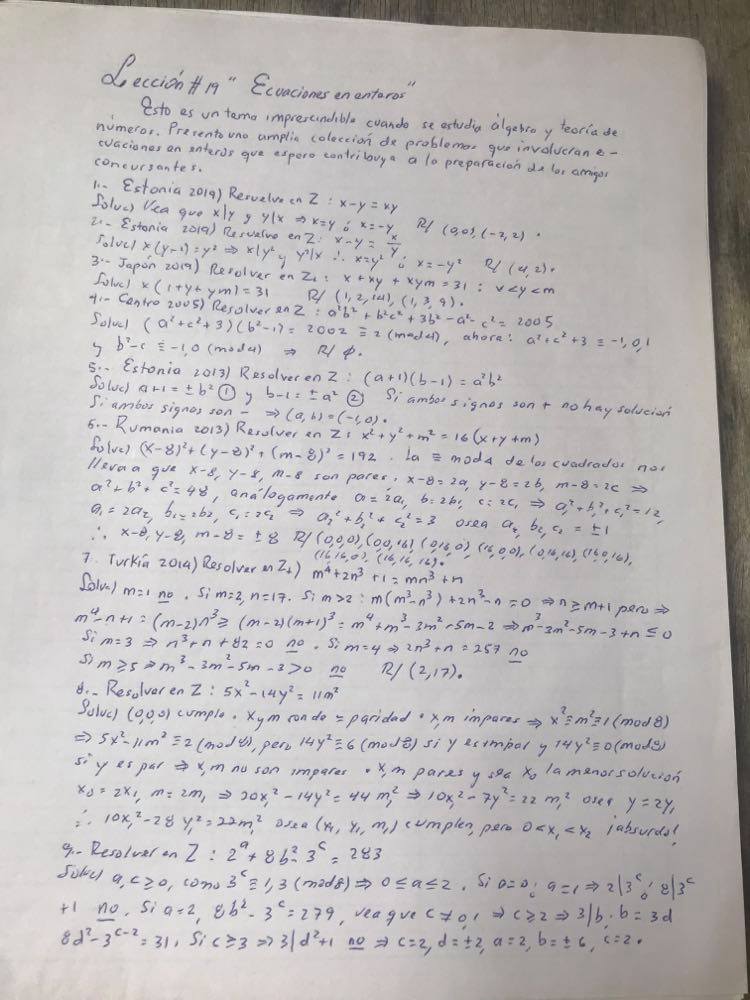 Lección #19 " Ecuaciones en enteros"
Esto es un tema imprescindible cuando se estudia álgebra y teoría de
números. Presento una amplia colección de problemas que involucran e-
cuaciones en enteros que espero contribuya a la preparación de los amigos
concursantes.
1.- Estonia 2019) Resuelve en Z : x-y = xy
Soluc) Vea que x|y y y|x ⇒ x=y ó x=-y. R/ (0,0), (-2,2) .
2.- Estonia 2019) Resuelve en Z: x-y = x/y
Soluc) x(y-1)=y² ⇒ x|y² y y²|x ∴ x=y² ó x=-y² R/ (4,2).
3.- Japón 2019) Resolver en Z+ : x + xy + xym = 31 ; v<y<m
Soluc) x(1+y+ym)=31 R/ (1,2,14), (1,3,9).
4.- Centro 2005) Resolver en Z : a²b² + b²c² + 3b² - a² - c² = 2005
Soluc) (a²+c²+3)(b²-1) = 2002 ≡ 2 (mod 4), ahora: a²+c²+3 ≡ -1,0,1
y b²-c ≡ -1,0 (mod 4) ⇒ R/ ∅.
5.- Estonia 2013) Resolver en Z : (a+1)(b-1) = a²b²
Soluc) a+1 = ±b² ① y b-1 = ±a² ② Si ambos signos son + no hay solución
Si ambos signos son - ⇒ (a,b) = (-1,0).
6.- Rumania 2013) Resolver en Z: x²+y²+m² = 16(x+y+m)
Soluc) (x-8)²+(y-8)²+(m-8)² = 192. La ≡ mod 4 de los cuadrados nos
lleva a que x-8, y-8, m-8 son pares. x-8=2a, y-8=2b, m-8=2c ⇒
a²+b²+c²=48, análogamente a=2a₁, b=2b₁, c=2c₁ ⇒ a₁²+b₁²+c₁²=12,
a₁=2a₂, b₁=2b₂, c₁=2c₂ ⇒ a₂²+b₂²+c₂²=3 osea a₂, b₂, c₂ = ±1
∴ x-8, y-8, m-8 = ±8 R/ (0,0,0), (0,0,16), (0,16,0), (16,0,0), (0,16,16), (16,0,16),
(16,16,0), (16,16,16).
7. Turkía 2014) Resolver en Z+) m⁴+2n³+1 = mn³+n
Soluc) m=1 no. Si m=2, n=17. Si m>2 : m(m³-n³)+2n³-n=0 ⇒ n≥m+1 pero ⇒
m⁴-n+1 = (m-2)n³ ≥ (m-2)(m+1)³ = m⁴+m³-3m²-5m-2 ⇒ m³-3m²-5m-3+n ≤ 0
Si m=3 ⇒ n³+n+82=0 no. Si m=4 ⇒ 2n³+n=257 no
Si m≥5 ⇒ m³-3m²-5m-3>0 no R/ (2,17).
8.- Resolver en Z : 5x²-14y² = 11m²
Soluc) (0,0,0) cumple. x y m ronde = paridad. x,m impares ⇒ x²≡m²≡1 (mod 8)
⇒ 5x²-11m² ≡ 2 (mod 8), pero 14y² ≡ 6 (mod 8) si y es impar y 14y² ≡ 0 (mod 8)
si y es par ⇒ x,m no son impares. x,m pares y sea x₀ la menor solución
x₀=2x₁, m=2m₁ ⇒ 20x₁²-14y²=44m₁² ⇒ 10x₁²-7y²=22m₁² osea y=2y₁
∴ 10x₁²-28y₁²=22m₁² osea (x₁, y₁, m₁) cumplen, pero 0<x₁<x₂ ¡absurdo!
9.- Resolver en Z : 2ᵃ+8b²-3ᶜ = 283
Soluc) a,c≥0, como 3ᶜ≡1,3 (mod 8) ⇒ 0≤a≤2. Si a=0 ó a=1 ⇒ 2|3ᶜ ó 8|3ᶜ
+1 no. Si a=2, 8b²-3ᶜ=279, vea que c≠0,1 ⇒ c≥2 ⇒ 3|b. b=3d
8d²-3ᶜ⁻²=31. Si c≥3 ⇒ 3|d²+1 no ⇒ c=2, d=±2, a=2, b=±6, c=2.